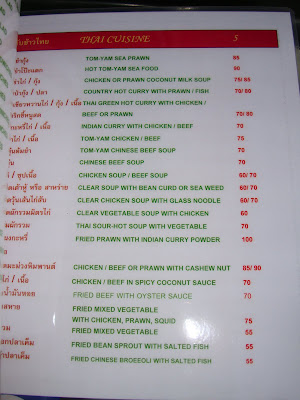 บข้าวไทย THAI CUISINE 5
TOM-YAM SEA PRAWN 85
HOT TOM-YAM SEA FOOD 90
ไก่ / กุ้ง CHICKEN OR PRAWN COCONUT MILK SOUP 75/ 85
กุ้ง / ปลา COUNTRY HOT CURRY WITH PRAWN / FISH 70/ 80
ไก่ / กุ้ง / เนื้อ THAI GREEN HOT CURRY WITH CHICKEN /
BEEF OR PRAWN 70/ 80
ไก่ / เนื้อ INDIAN CURRY WITH CHICKEN / BEEF 70
ไก่ / เนื้อ TOM-YAM CHICKEN / BEEF 75
TOM-YAM CHINESE BEEF SOUP 70
CHINESE BEEF SOUP 70
/ ซุปเนื้อ CHICKEN SOUP / BEEF SOUP 60/ 70
หรือ สาหร่าย CLEAR SOUP WITH BEAN CURD OR SEA WEED 60/ 70
วุ้นเส้นไก่สับ CLEAR CHICKEN SOUP WITH GLASS NOODLE 60/ 70
CLEAR VEGETABLE SOUP WITH CHICKEN 60
THAI SOUR-HOT SOUP WITH VEGETABLE 70
FRIED PRAWN WITH INDIAN CURRY POWDER 100
CHICKEN / BEEF OR PRAWN WITH CASHEW NUT 85/ 90
/ เนื้อ CHICKEN / BEEF IN SPICY COCONUT SAUCE 70
น้ำมันหอย FRIED BEEF WITH OYSTER SAUCE 70
FRIED MIXED VEGETABLE
WITH CHICKEN, PRAWN, SQUID 75
FRIED MIXED VEGETABLE 55
FRIED BEAN SPROUT WITH SALTED FISH 55
ปลาเค็ม FRIED CHINESE BROEEOLI WITH SALTED FISH 55